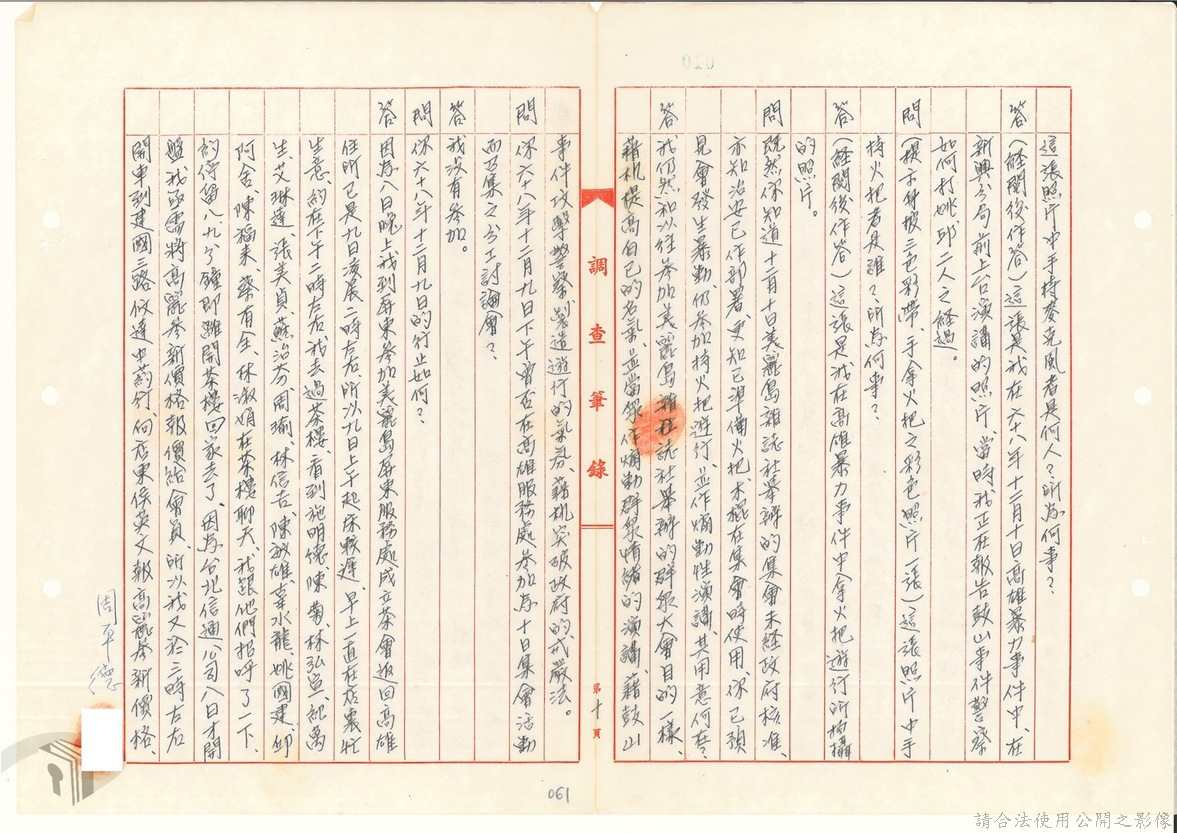 020
這張照片中手持麥克風者是何人？所為何事？
答 （經閱後作答）這張是我在六十八年十二月十日高雄暴力事件中、在
新興分局前上台演講的照片、當時我正在報告鼓山事件警察
如何打姚、邱二人之經過。
問 （提示身披三色彩帶、手拿火把之彩色照片一張）這張照片中手
持火把者是誰？所為何事？
答 （經閱後作答）這張是我在高雄暴力事件中拿火把遊行所拍攝
的照片。
問 既然你知道十二月十日美麗島雜誌社舉辦的集會未經政府核准、
亦知治安已作部署、更知已準備火把、木棍在集會時使用、你已預
見會發生暴動、仍參加持火把遊行、並作煽動性演講其用意何在？
答 我仍然和以往參加美麗島雜誌社舉辦的群眾大會目的一樣、
藉機提高自己的名氣、並當眾作煽動群眾情緒的演講、藉鼓山
調查筆錄
第十頁
事件攻擊警察、製造遊行的氣氛、藉机突破政府的戒嚴法。
問 你六十八年十二月九日下午曾否在高雄服務處參加為十日集會活動
而召集之分工討論會？
答 我沒有參加。
問 你六十八年十二月九日的行止如何？
答 因為八日晚上我到屏東參加美麗島屏東服務處成立茶會返回高雄
住所已是九日凌晨二時左右、所以九日上午起床較遲、早上一直在店裏忙
生意、約在下午二時左右、我去過茶樓、看到施明德、陳菊、林弘宣、紀萬
生、艾琳達、張美貞、蘇治芬、周瑜、林信吉、陳敏雄、辜水龍、姚國建、邱
阿舍、陳福來、蔡有全、林淑娟在茶樓聊天、我跟他們招呼了一下、
約停留八、九分鐘即離開茶樓回家去了、因為台北信通公司八日才開
盤、我必需將高麗參新價格報價給會員、所以我又於三時左右
開車到建國三路何達中葯行、向店東侯英文報高麗參新價格、
周平德
061
請合法使用公開之影像